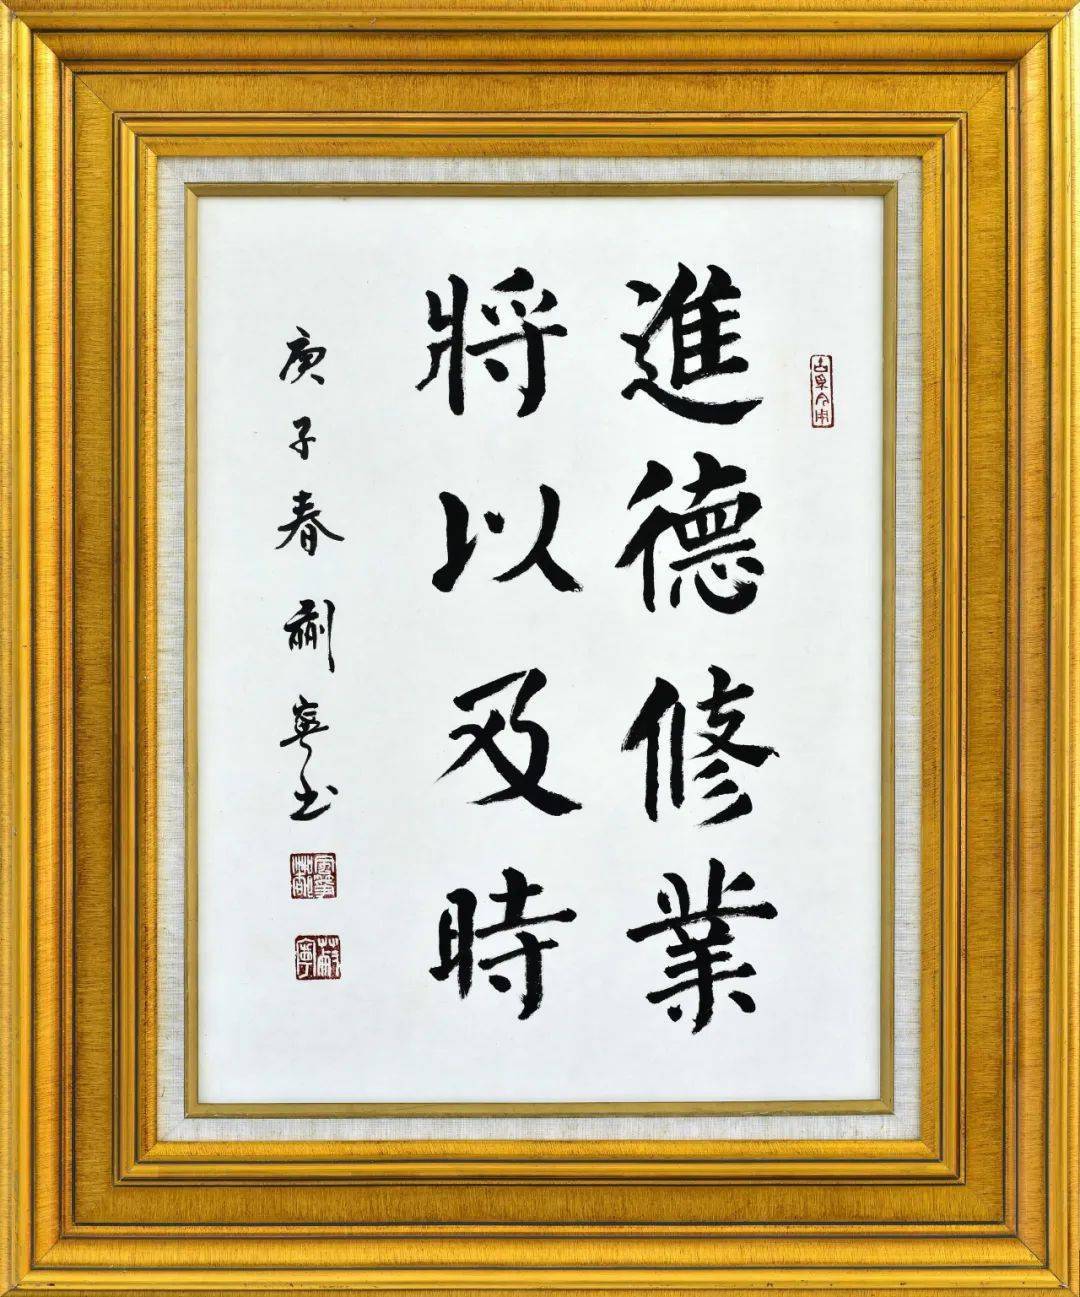 進德修業
將以及時
庚子春蒯寧書